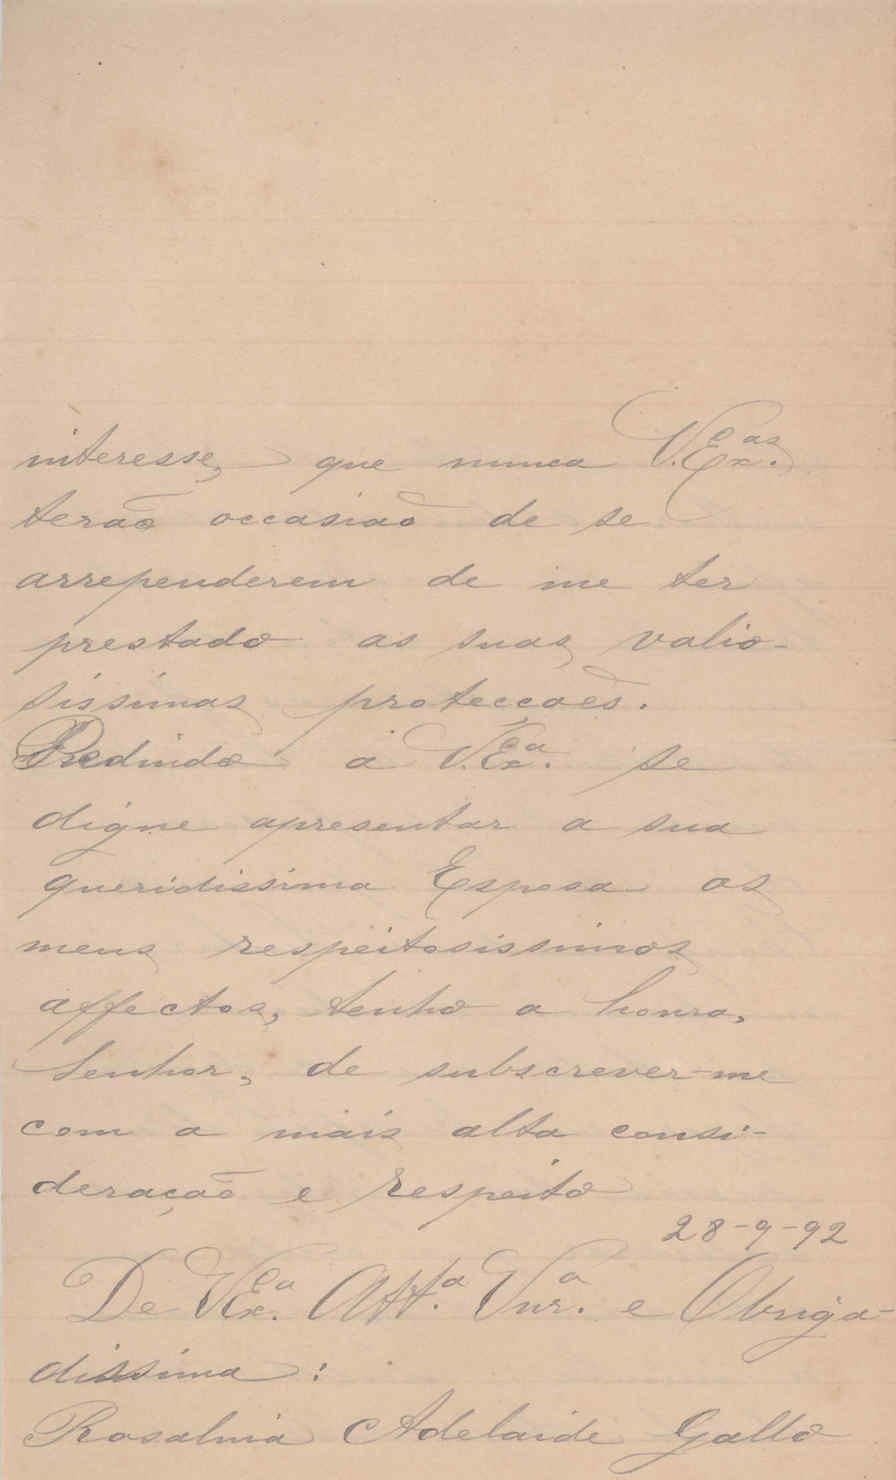 interesse, que nunca V. Ex.as
terão occasiaõ de se
arrependerem de me ter
prestado as suas valio-
sissimas protecçoẽs.
Pedindo a V. Ex.a se
digne apresentar a sua
queridissima Esposa os
meus respeitosissimos
affectos, tenho a honra,
Senhor, de subscrever-me
com a mais alta consi-
deração e respeito
28-9-92
De V. Ex.a Att.a Vnr.a e Obriga-
dissima:
Rosalina Adelaide Gallo